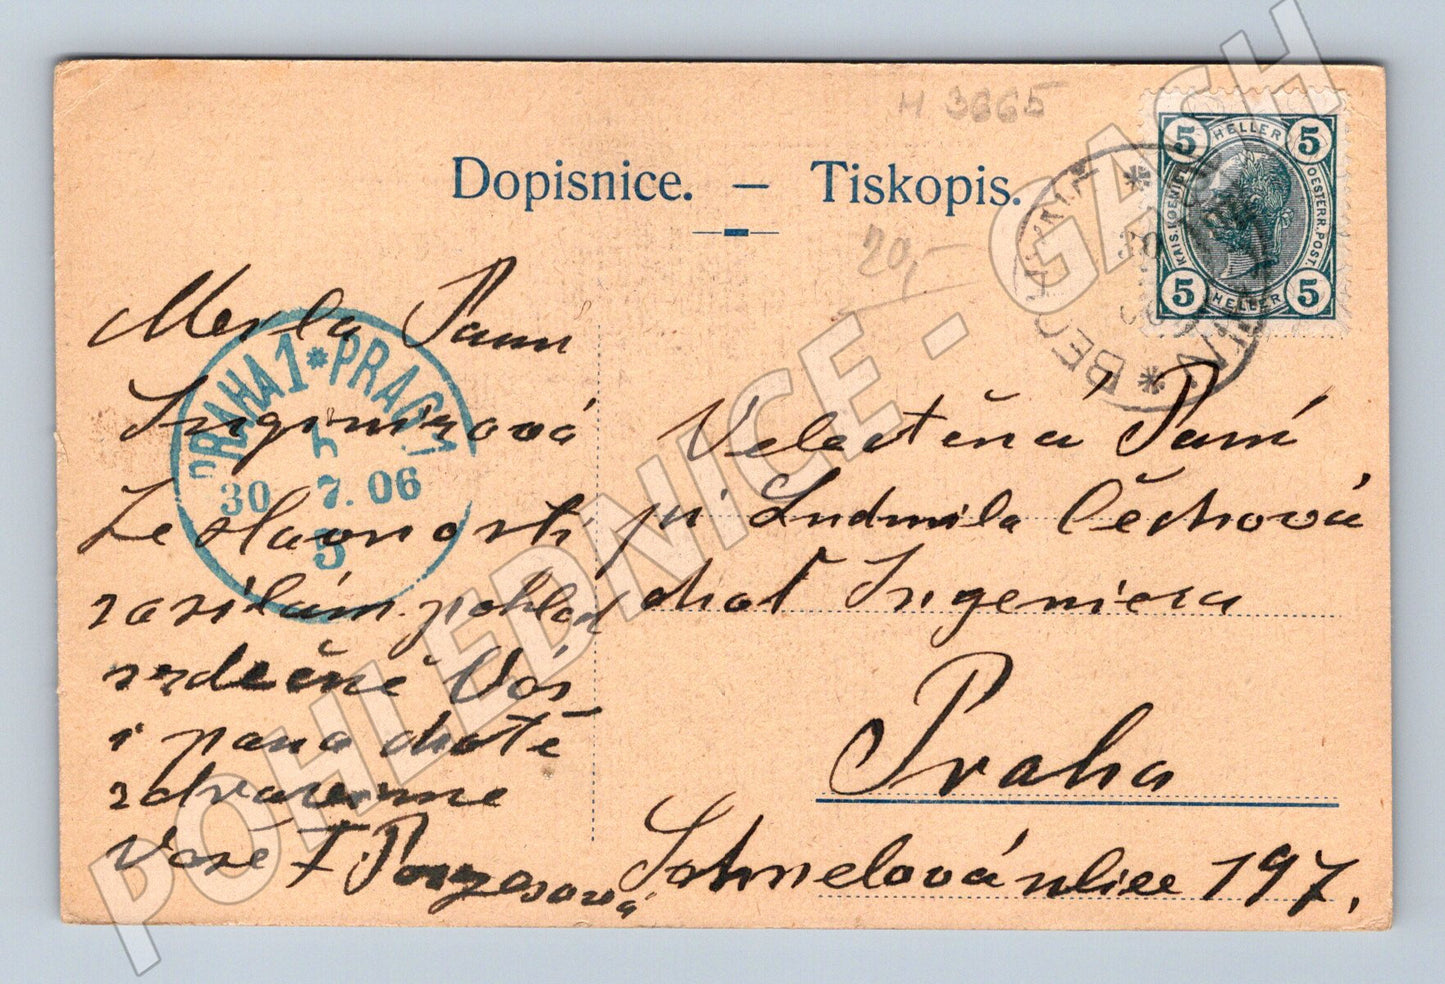 H 3665
Dopisnice. — Tiskopis.
20,-
5 HELLER 5
KAIS. KOENIGL. OESTERR. POST.
5 HELLER 5
PRAHA 1 * PRAG 1
30 7. 06
5
Merla Paní
Inginirová
Ze slavnosti
zasílám pohled
srdečně Vás
i pana chotě
zdravíme
Vaše F Porgesová
Velectěná Paní
pí Ludmila Čechová
choť Ingeniera
Praha
Schnelová ulice 197.
POHLEDNICE - GASH